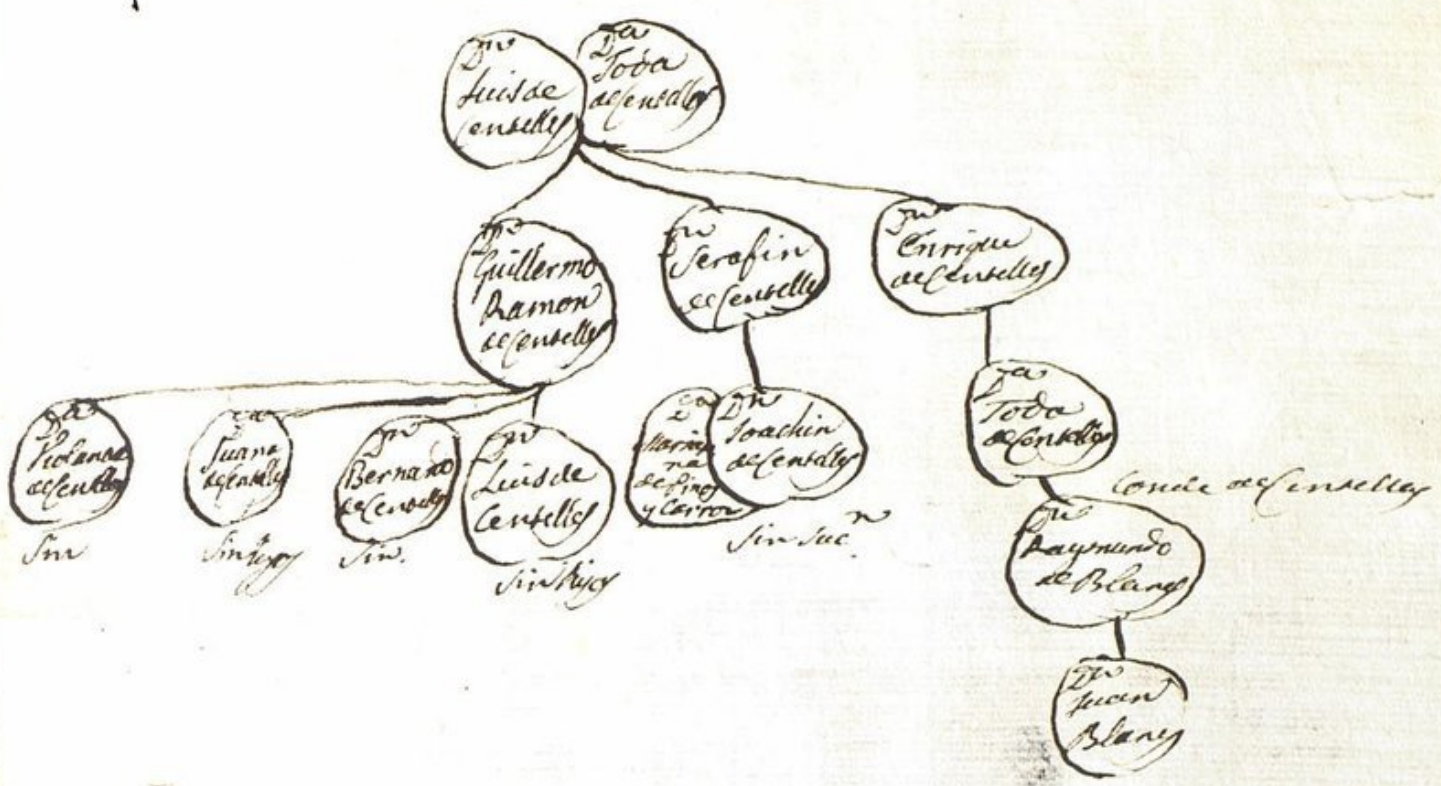 Dn
Luis de
Centelles
Da
Toda
de Centelles
Dn
Guillermo
Ramon
de Centelles
Dn
Serafin
de Centelles
Dn
Enrique
de Centelles
Da
Violante
de Centelles
Sin
Da
Juana
de Centelles
Sin hijos
Dn
Bernardo
de Centelles
Sin.
Dn
Luis de
Centelles
Sin Hijos
Da
Maria
na
de Pinos
y Carroz
Dn
Joachin
de Centelles
Sin Sucn.
Da
Toda
de Centelles
Conde de Centelles
Dn
Raymundo
de Blanes
Dn
Juan
Blanes